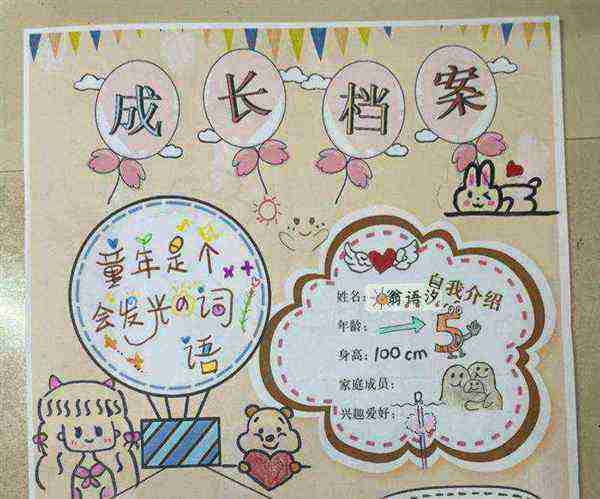 成长档案
童年是个
会发光的词
语
自我介绍
姓名：翁语汐
年龄：5
身高：100cm
家庭成员：
兴趣爱好：